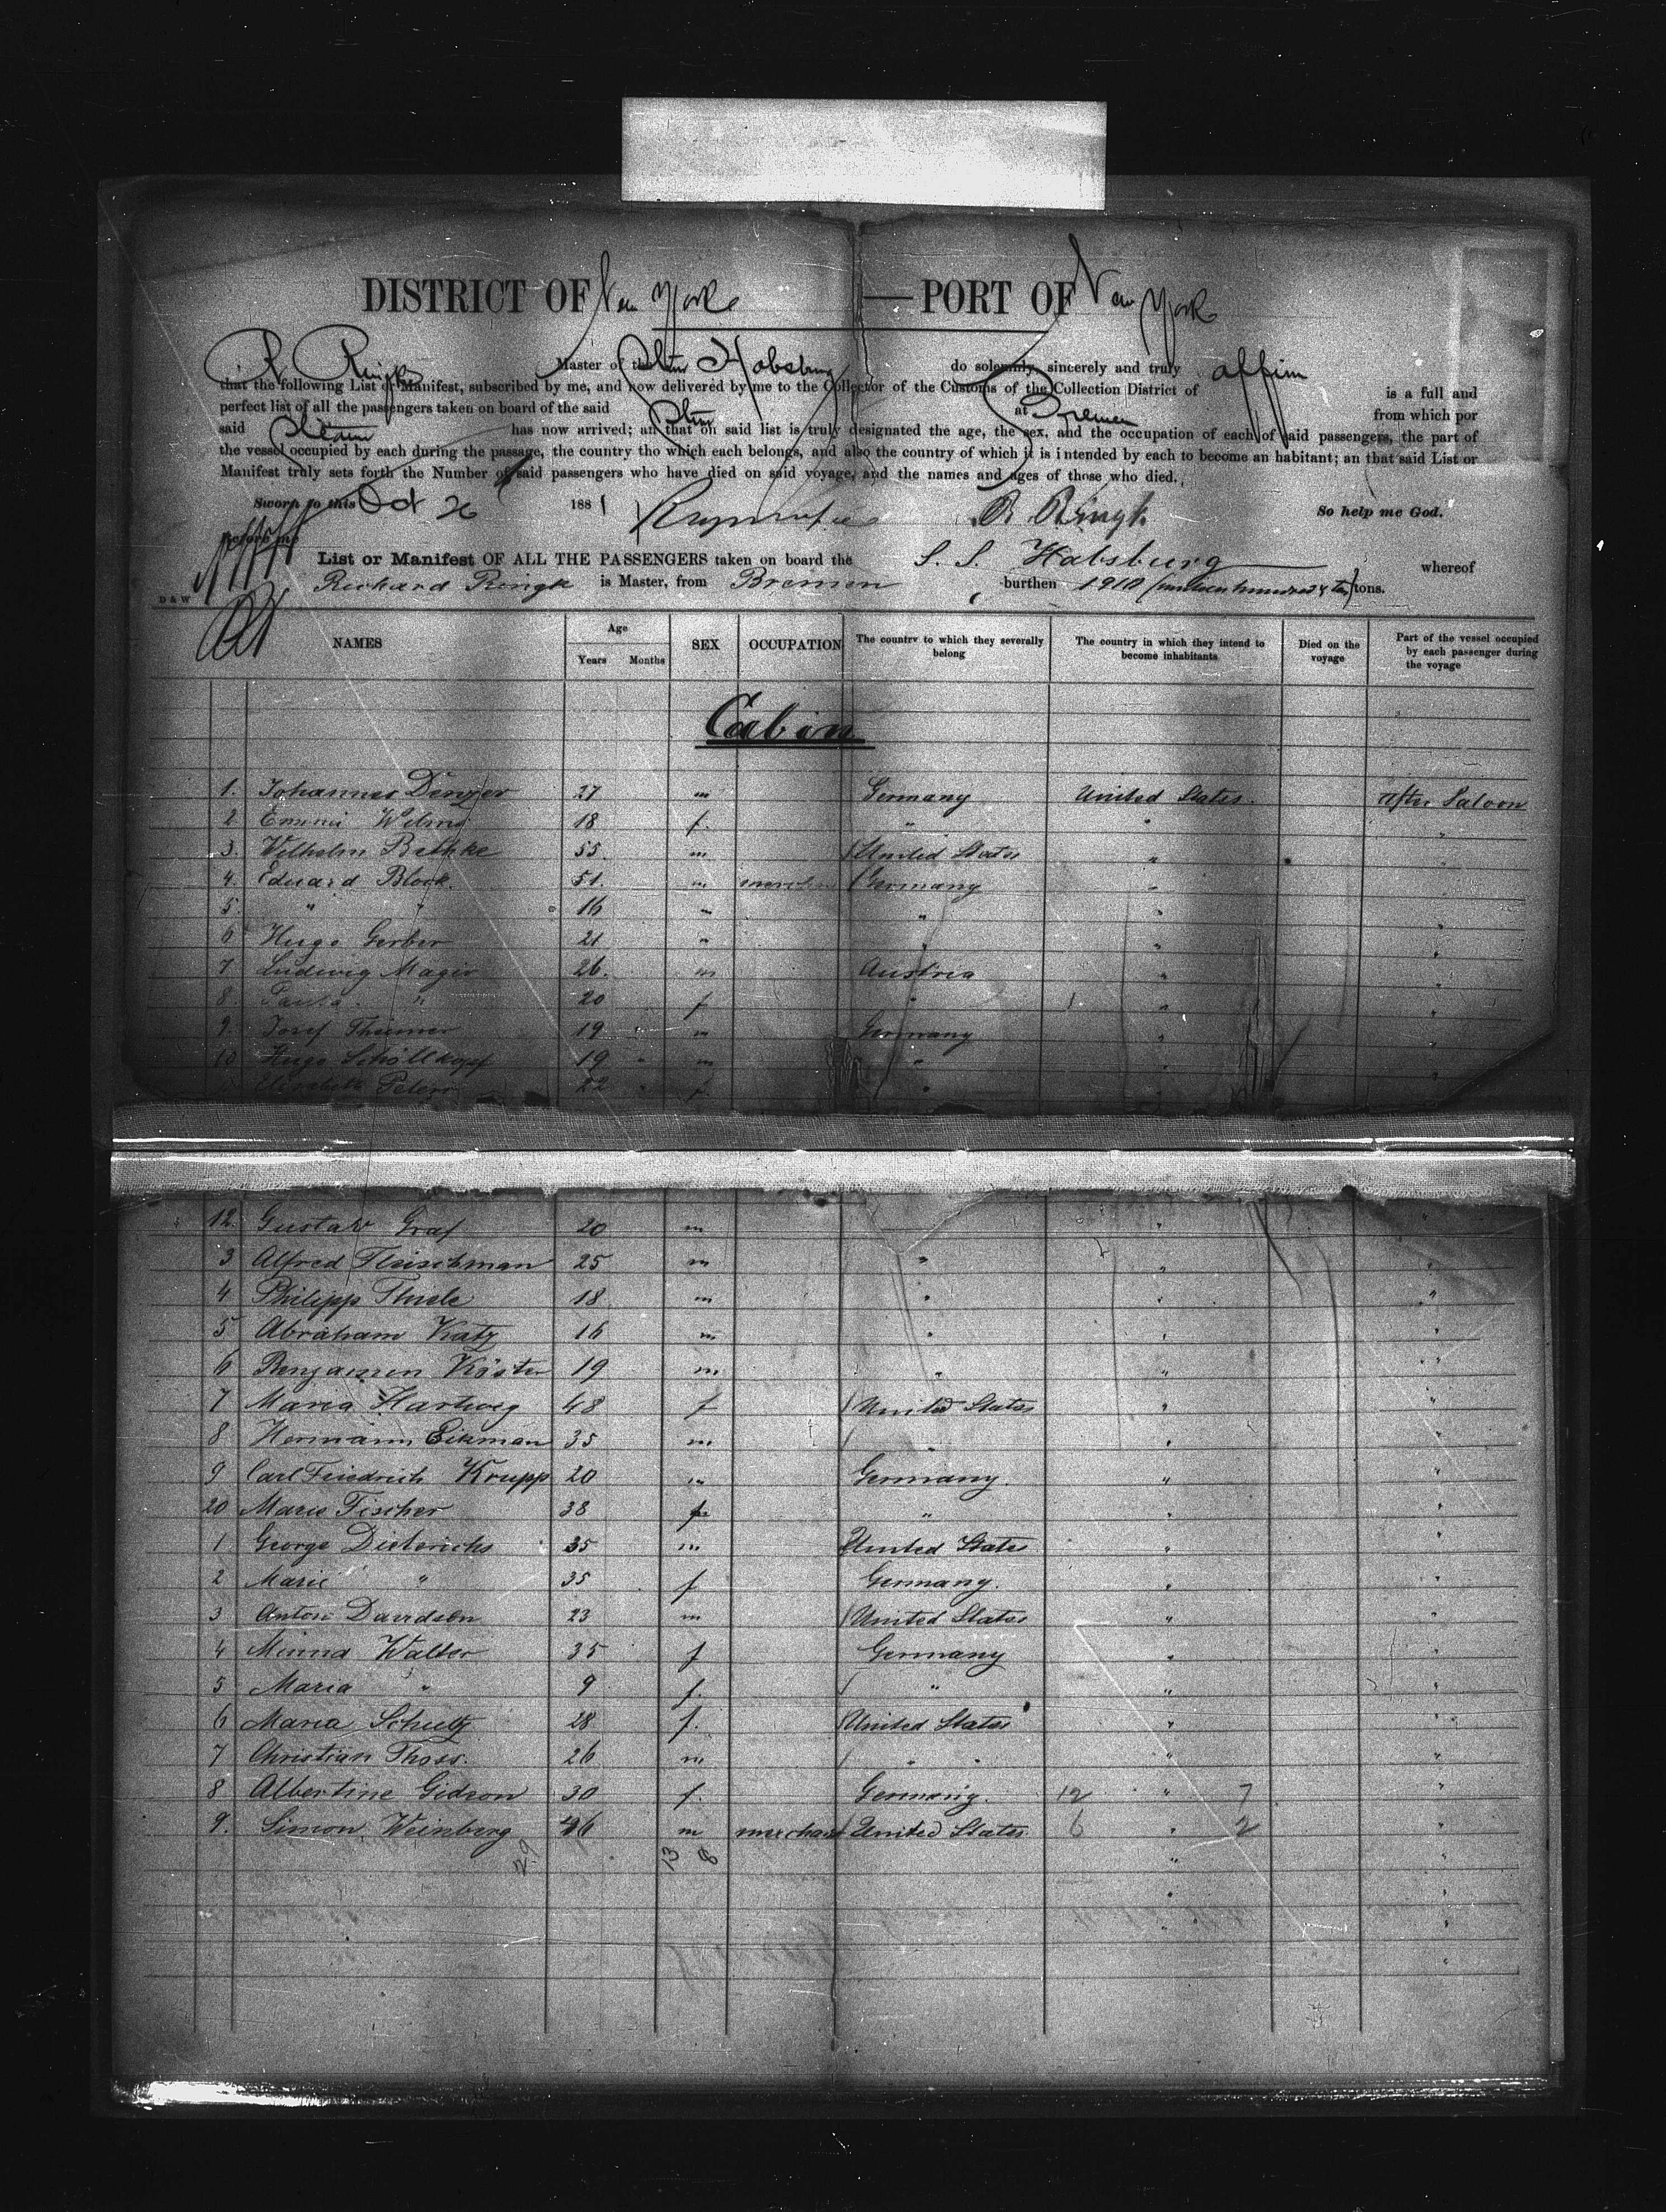 DISTRICT OF New York — PORT OF New York
R. Ringk Master of the Stmr Habsburg do solemnly, sincerely and truly affirm
that the following List or Manifest, subscribed by me, and now delivered by me to the Collector of the Customs of the Collection District of is a full and
perfect list of all the passengers taken on board of the said Stmr at Bremen from which por
said Steamer has now arrived; an that on said list is truly designated the age, the sex, and the occupation of each of said passengers, the part of
the vessel occupied by each during the passage, the country tho which each belongs, and also the country of which it is intended by each to become an habitant; an that said List or
Manifest truly sets forth the Number of said passengers who have died on said voyage, and the names and ages of those who died.
Sworn to this Oct 26 1881 R Ringk So help me God.
Before me
List or Manifest OF ALL THE PASSENGERS taken on board the S. S. Habsburg whereof
Richard Ringk is Master, from Bremen burthen 1910 (nineteen hundred & ten) tons.
D & W
NAMES Age Years Months SEX OCCUPATION The country to which they severally belong The country in which they intend to become inhabitants Died on the voyage Part of the vessel occupied by each passenger during the voyage
Cabin
1. Johannes Denzer 27 m Germany United States. After Saloon
2 18 f. " " "
3. Wilhelm Bethke 55. m United States " "
4. Eduard Block. 51. m Germany " "
5. " " 16 " " " "
6 Hugo Gerber 21 " " " "
7 Ludwig Magir 26. m Austria " "
8. Paula " 20 f " " "
9. Josef Thiemer 19 m Germany " "
10 Hugo Schöllkopf 19 m " " "
Elisabeth Peters 22 f "
12. Gustav Graf 20 m " "
3 Alfred Fleischman 25 m " " "
4 Philipp Thiele 18 m " " "
5 Abraham Katz 16 m " " "
6 Benjamin Köster 19 m " " "
7 Maria Hartwig 48 f United States " "
8 Hermann Eikman 35 m " " "
9 Carl Friedrich Krupp 20 m Germany. " "
20 Marie Fischer 38 f " " "
1 George Dieterichs 35 m United States " "
2 Marie " 35 f Germany. " "
3 Anton Davidson 23 m United States " "
4 Minna Walter 35 f Germany " "
5 Maria " 9 f. " " "
6 Maria Schultz 28 f. United States " "
7 Christian Thoss. 26 m " " " "
8 Albertine Gidson 30 f. Germany. 12 " 7 "
9. Simon Weinberg 46 m merchant United States. 6 " 2 "
29 13 8 " "
" "
" "
"